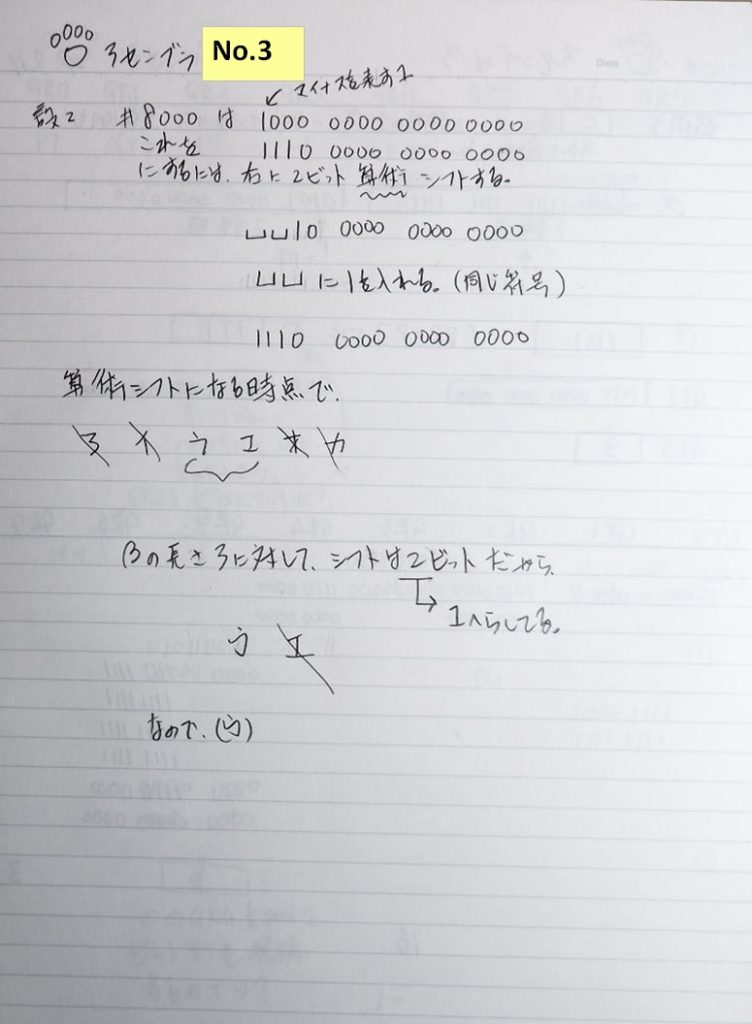 アセンブラ No.3
マイナスを表す1
設2 #8000 は 1000 0000 0000 0000
これを 1110 0000 0000 0000
にするには、右に2ビット 算術シフトする。
⊔⊔10 0000 0000 0000
⊔⊔ に1を入れる。(同じ符号)
1110 0000 0000 0000
算術シフトになる時点で、
ア イ ウ エ オ カ
βの長さ3に対して、シフトは2ビットだから、
1へらしてる。
ウ エ
なので、(ウ)